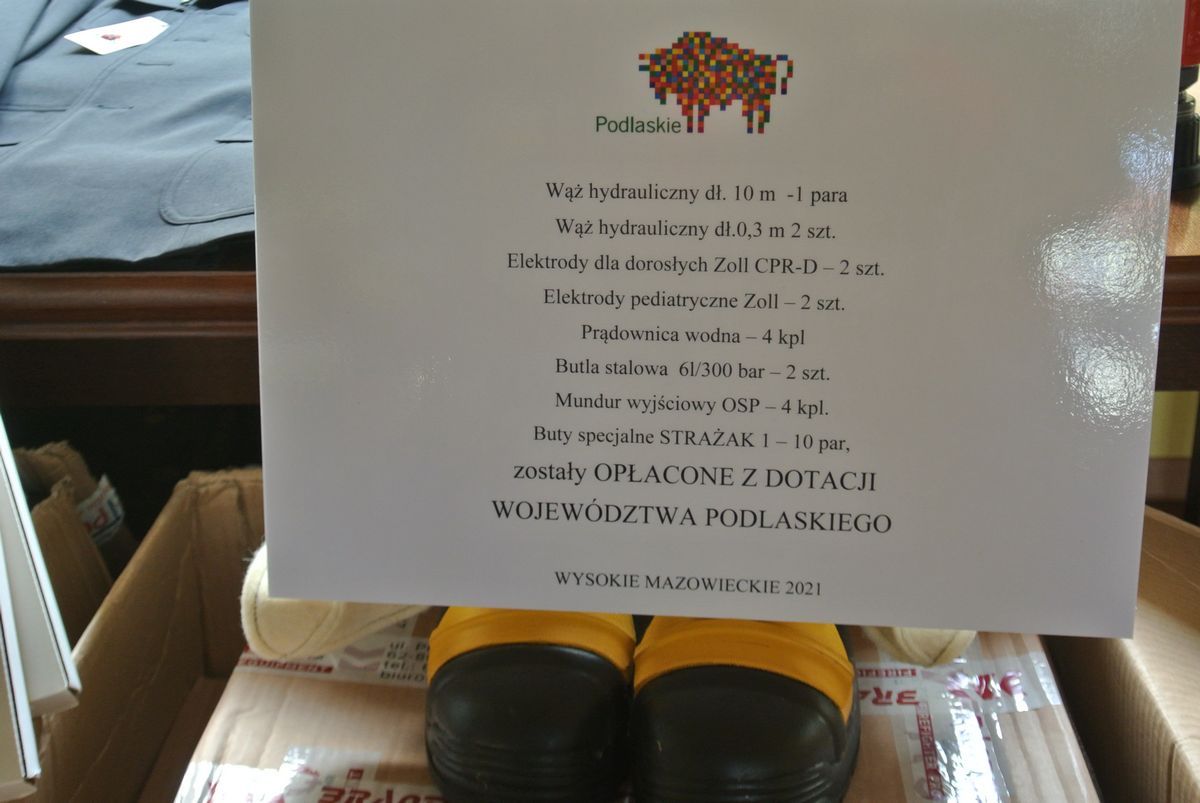 Podlaskie
Wąż hydrauliczny dł. 10 m -1 para
Wąż hydrauliczny dł.0,3 m 2 szt.
Elektrody dla dorosłych Zoll CPR-D – 2 szt.
Elektrody pediatryczne Zoll – 2 szt.
Prądownica wodna – 4 kpl
Butla stalowa 6l/300 bar – 2 szt.
Mundur wyjściowy OSP – 4 kpl.
Buty specjalne STRAŻAK 1 – 10 par,
zostały OPŁACONE Z DOTACJI
WOJEWÓDZTWA PODLASKIEGO
WYSOKIE MAZOWIECKIE 2021